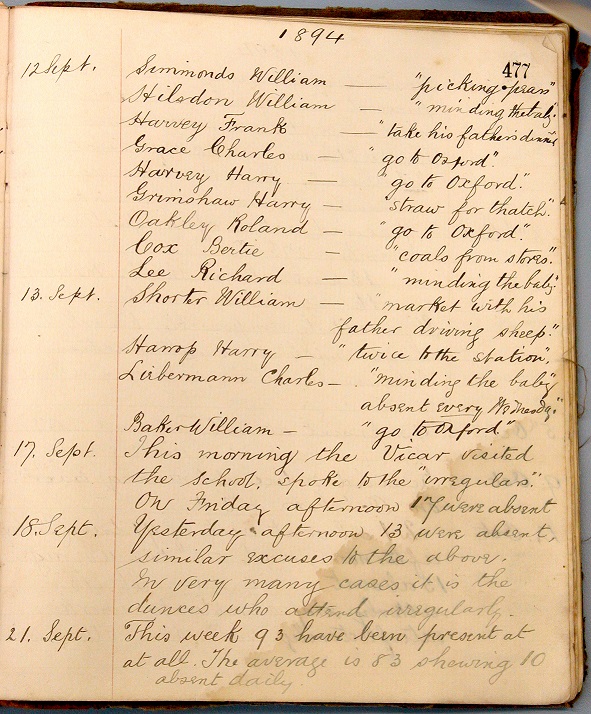 1894
477
12 Sept. Simmonds William — "picking pears"
Hilsdon William — "minding the baby
Harvey Frank — "take his fathers dinner
Grace Charles — "go to Oxford".
Harvey Harry — "go to Oxford".
Grimshaw Harry — "straw for thatch".
Oakley Roland — "go to Oxford".
Cox Bertie — "coals from stores".
Lee Richard — "minding the baby
13. Sept. Shorter William — "market with his
father driving sheep".
Harrop Harry — "twice to the station".
Liebermann Charles — "minding the baby
absent every Wednesday"
Baker William — "go to Oxford"
17. Sept. This morning the Vicar visited
the school, spoke to the "irregulars".
On Friday afternoon 17 were absent
18. Sept. Yesterday afternoon 13 were absent,
similar excuses to the above.
In very many cases it is the
dunces who attend irregularly.
21. Sept. This week 93 have been present at
at all. The average is 83 shewing 10
absent daily.